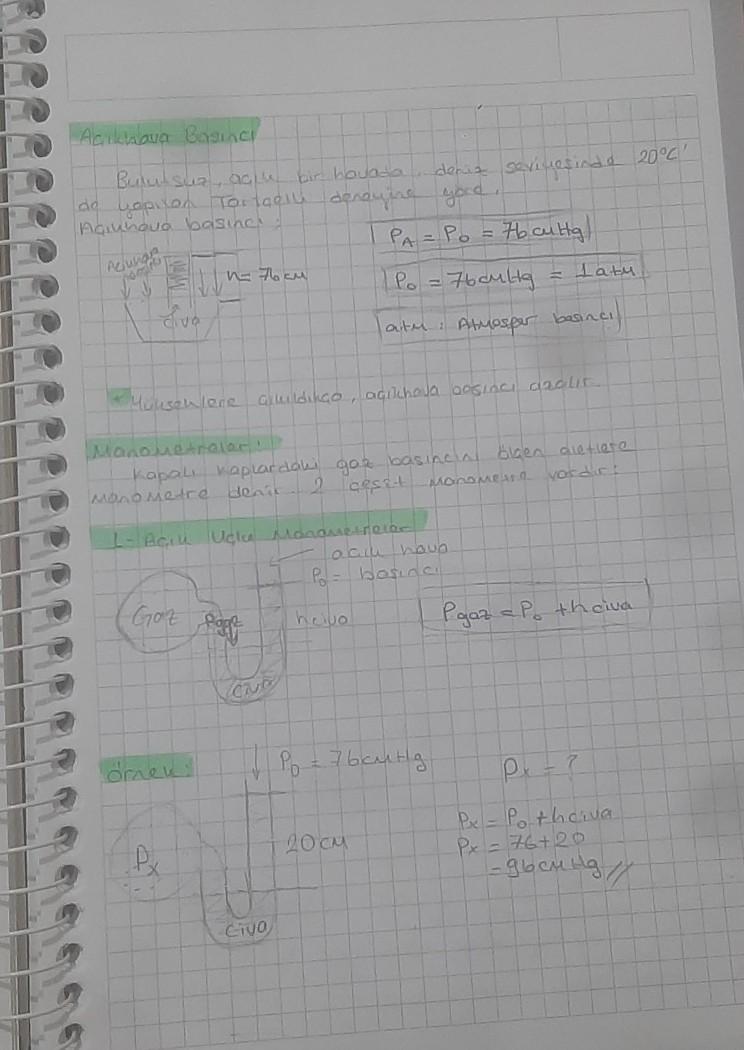 Açıkhava Basıncı
Bulutsuz, açık bir havada, deniz seviyesinde 20°C'
de yapılan Toriçelli deneyine göre,
Açıkhava basıncı:
PA = P0 = 76 cmHg
Açıkhava
h = 76 cm
P0 = 76 cmHg = 1 atm
civa
atm: Atmosfer basıncı
Yükseklere çıkıldıkça, açıkhava basıncı azalır.
Manometreler:
Kapalı kaplardaki gaz basıncını ölçen aletlere
manometre denir. 2 çeşit manometre vardır:
1- Açık Uçlu Manometreler
açık hava
P0 = basıncı
Gaz
Pgaz
hciva
Pgaz = P0 + hciva
Civa
Örnek:
P0 = 76 cmHg
Px = ?
Px = P0 + hciva
20 cm
Px = 76 + 20
Px
= 96 cmHg //
Civa